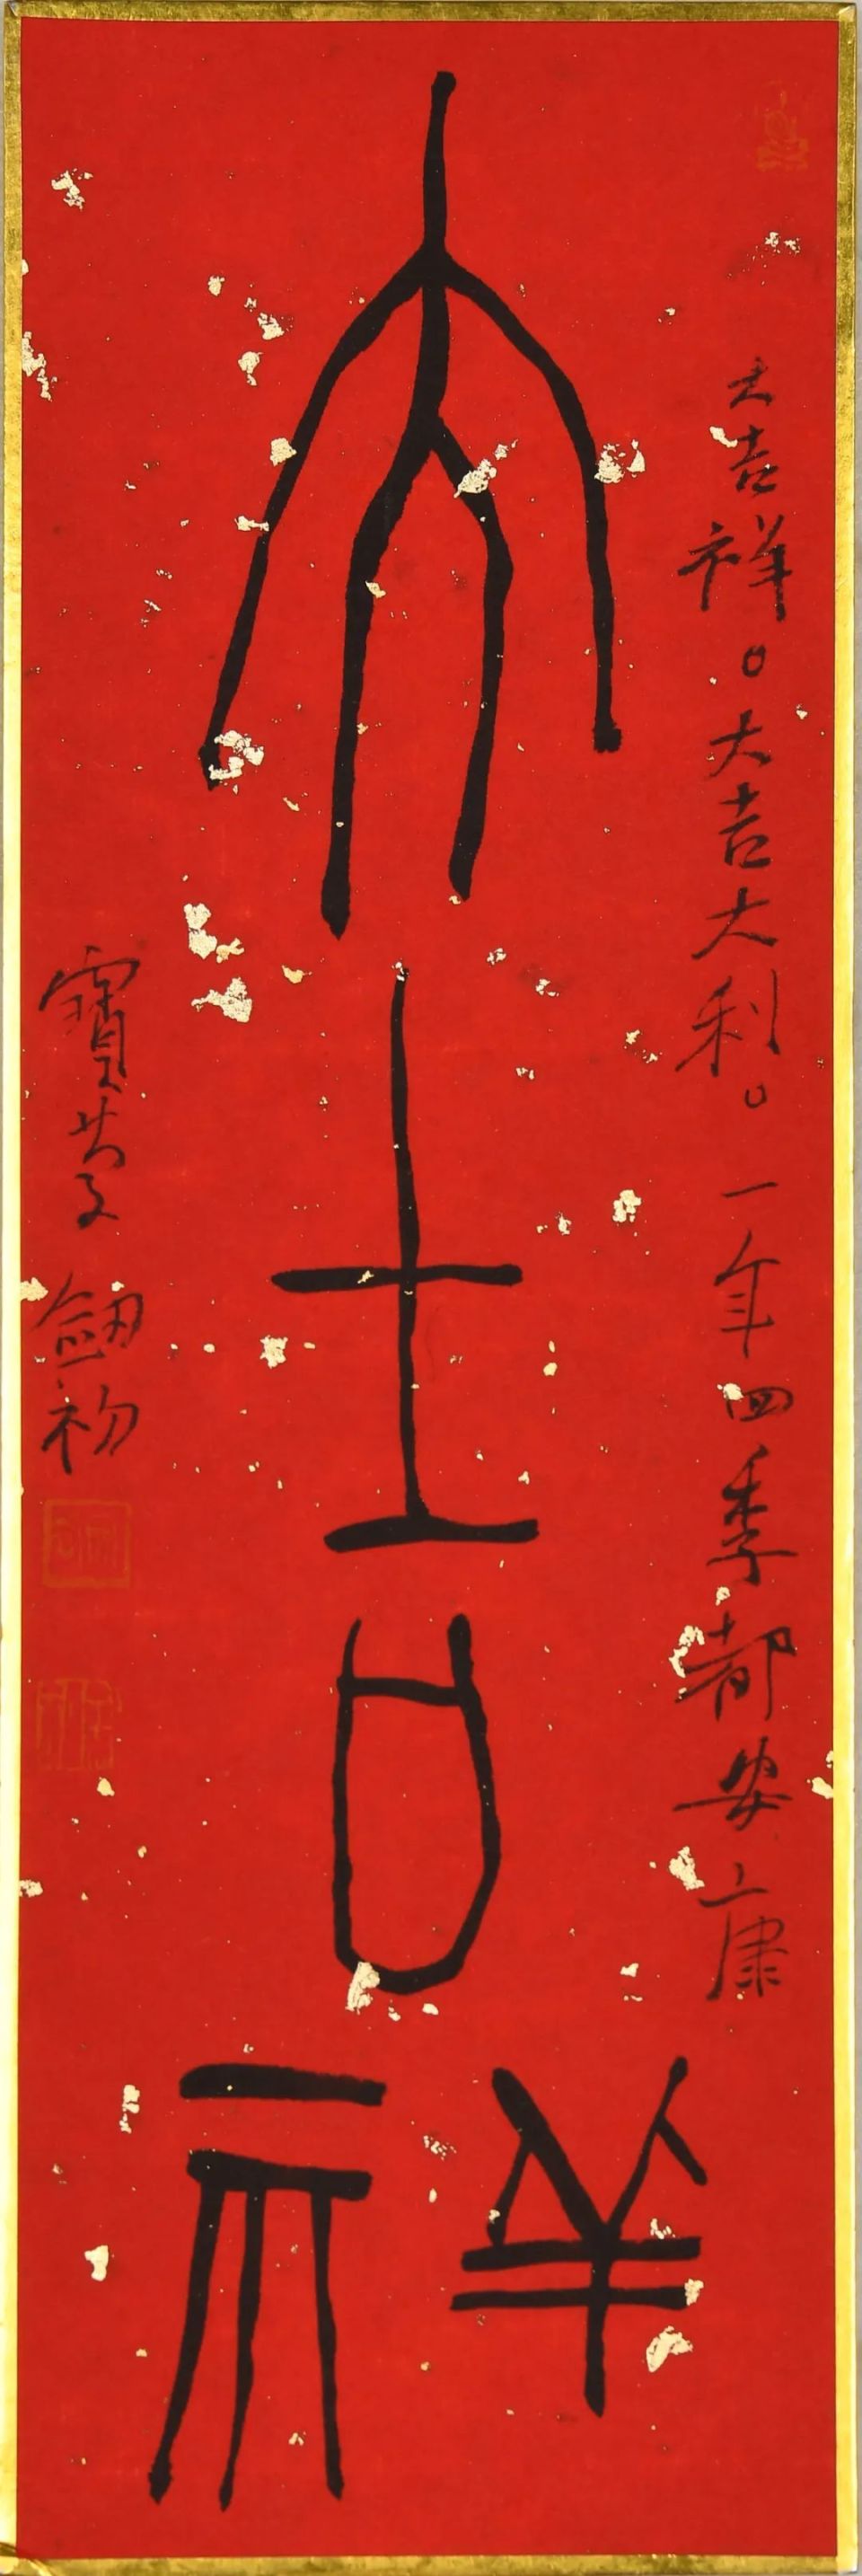 大吉祥。大吉大利。一年四季都安康
大吉祥
寶
劍初